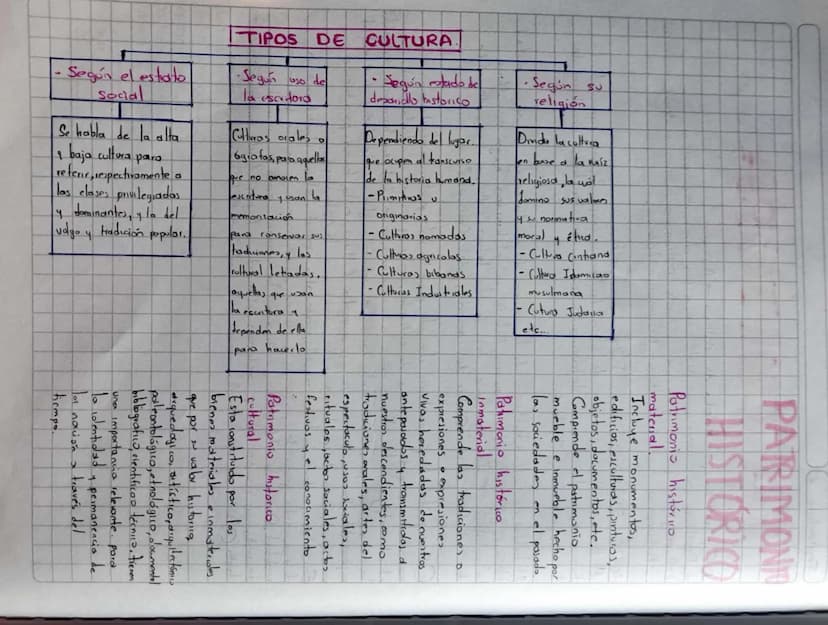 TIPOS DE CULTURA
- Según el estrato
social
Se habla de la alta
y baja cultura para
referir, respectivamente a
las clases privilegiadas
y dominantes, y la del
vulgo y tradición popular.
- Según uso de
la escritura
Culturas orales o
que no conocen la
escritura y usan la
memorización
para conservar sus
tradiciones, y las
cultural letradas,
aquellas que usan
la escritura y
dependen de ella
para hacerlo
- Según estado de
desarrollo histórico
Dependiendo del lugar
que ocupen al transcurso
de la historia humana.
- Primitivas u
originarias
- Culturas nomadas
- Culturas agricolas
- Culturas
- Culturas Industriales
- Según su
religión
Divide la cultura
en base a la raíz
religiosa, la cual
domino sus valores
y su normativa
moral y ética.
- Cultura Cristiana
- Cultura Islamica o
musulmana
- Cultura Judaria
etc...
PATRIMONIO
HISTÓRICO
Patrimonio histórico
material
Incluye monumentos,
edificios, esculturas, pinturas,
objetos, documentos, etc.
Comprende el patrimonio
mueble e inmueble hecho por
las sociedades en el pasado
Patrimonio histórico
inmaterial
Comprende las tradiciones o
expresiones o expresiones
vivas heredadas de nuestros
antepasados y transmitidas a
nuestros descendientes, como
tradiciones orales, artes del
espectaculo, usos sociales,
rituales, actos sociales, actos
festivos y el conocimiento
Patrimonio historico
cultural
Esta constituido por los
bienes materiales e inmateriales
que por su valor historico,
arqueologico, artístico, arquitectónico
paleontológico, etnológico, documental
bibliografico, científico o técnico, tienen
una importancia relevante para
la identidad y permanencia de
la nación a través del
tiempo